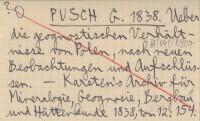 ?
PUSCH G. 1838. Ueber
die geognostischen Verhält-
nisse von Polen, nach neuen
Beobachtungen und Aufschlüs-
sen. — Karsten's Archiv für
Mineralogie, Geognosie, Bergbau
und Hüttenkunde 1838, tom 12, 154.